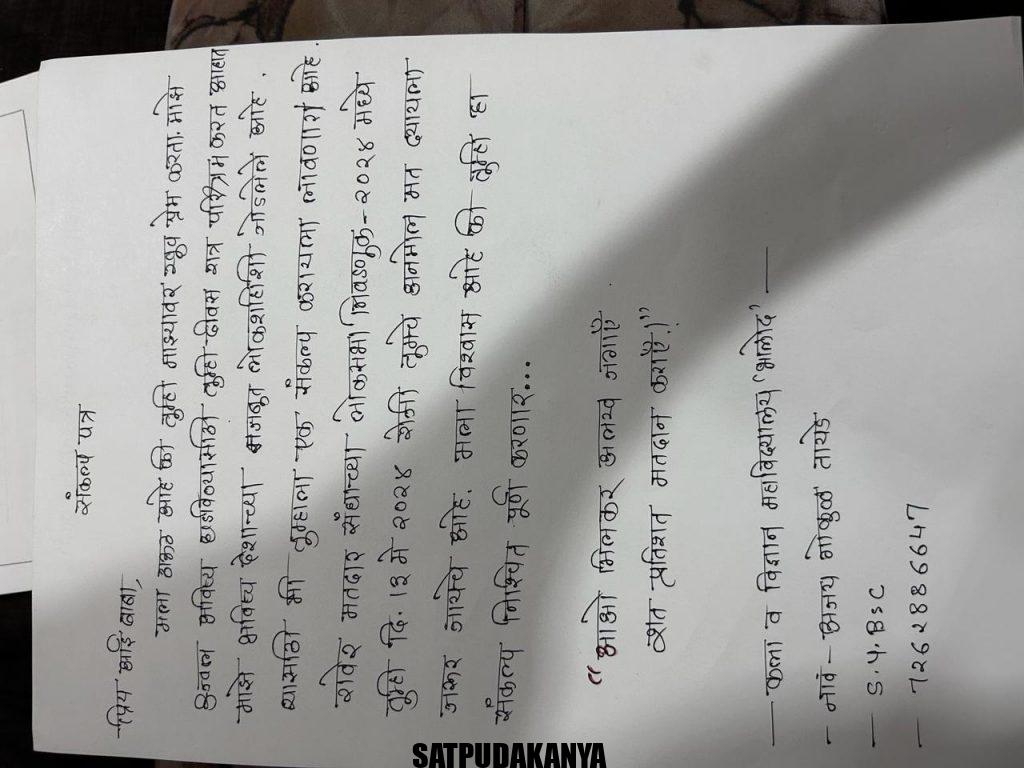 संकल्प पत्र
प्रिय आई बाबा,
मला ठाऊक आहे की तुम्ही माझ्यावर खुप प्रेम करता. माझं
उज्वल भविष्य घडविण्यासाठी तुम्ही दीवस रात्र परिश्रम करत आहात
माझे भविष्य देशाच्या मजबुत लोकशाहिशी जोडलेले आहे.
यासाठी मी तुम्हाला एक संकल्प करायला लावणार आहे.
रावेर मतदार संघाच्या लोकसभा निवडणुक-२०२४ मध्ये
तुम्ही दि. १३ मे २०२४ रोजी तुमचे अनमोल मत द्यायला
जरूर जायचे आहे. मला विश्वास आहे की तुम्ही हा
संकल्प निश्चित पूर्ण करणार...
"आओ मिलकर अलख जगाएँ
शत प्रतिशत मतदान कराएँ!"
— कला व विज्ञान महाविद्यालय 'भालोद' —
- नावं - अजय गोकुळ तायडे
— S.Y.BSC
— 7262886647
SATPUDAKANYA